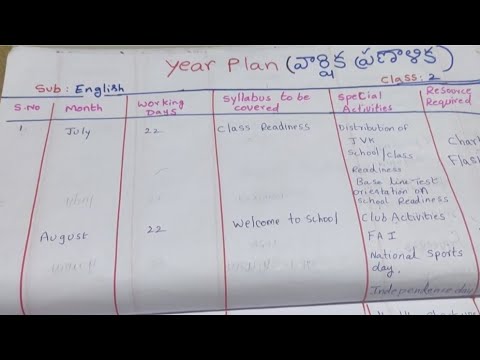 Year Plan (వార్షిక ప్రణాళిక)
Sub: English
Class: 2
S.No Month Working Days Syllabus to be covered Special Activities Resource Required
1 July 22 Class Readiness Distribution of
JVK
School/class
Readiness
Base Line-Test
orientation on
School Readiness
August 22 Welcome to School Club Activities
FA I
National Sports
day.
Independence day